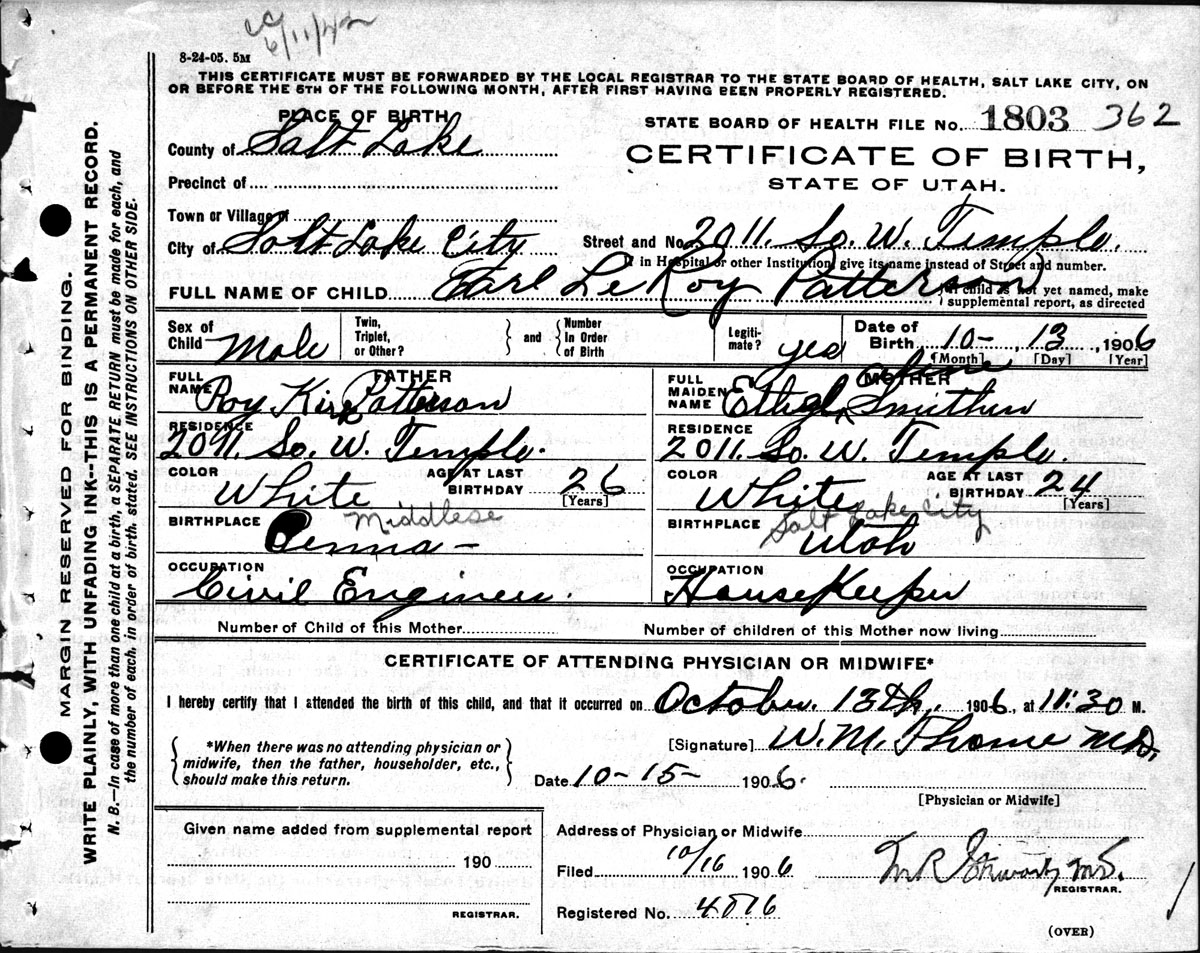 6/11/42
8-24-05. 5M
THIS CERTIFICATE MUST BE FORWARDED BY THE LOCAL REGISTRAR TO THE STATE BOARD OF HEALTH, SALT LAKE CITY, ON
OR BEFORE THE 5TH OF THE FOLLOWING MONTH, AFTER FIRST HAVING BEEN PROPERLY REGISTERED.
PLACE OF BIRTH
STATE BOARD OF HEALTH FILE No. 1803 362
County of Salt Lake
CERTIFICATE OF BIRTH,
Precinct of
STATE OF UTAH.
Town or Village of
City of Salt Lake City Street and No. 2011. So. W. Temple.
If in Hospital or other Institution, give its name instead of Street and number.
FULL NAME OF CHILD Earl Le Roy Patterson
If child is not yet named, make
supplemental report, as directed
Sex of Child Male Twin, Triplet, or Other? and Number In Order of Birth Legiti-mate? yes Date of Birth 10- , 13 , 1906
[Month] [Day] [Year]
FATHER
FULL NAME Roy Kirk Patterson
RESIDENCE
2011. So. W. Temple.
COLOR White AGE AT LAST BIRTHDAY 26
[Years]
BIRTHPLACE Middlese
Penna-
OCCUPATION
Civil Engineer.
Number of Child of this Mother
MOTHER
FULL MAIDEN NAME Ethel Smithen
RESIDENCE
2011. So. W. Temple.
COLOR White AGE AT LAST BIRTHDAY 24
[Years]
BIRTHPLACE Salt Lake City
Utah
OCCUPATION
HouseKeeper
Number of children of this Mother now living
CERTIFICATE OF ATTENDING PHYSICIAN OR MIDWIFE*
I hereby certify that I attended the birth of this child, and that it occurred on October. 13th, 1906, at 11:30 M.
*When there was no attending physician or
midwife, then the father, householder, etc.,
should make this return.
[Signature] W. M. Thome M.D.
Date 10-15- 1906.
[Physician or Midwife]
Given name added from supplemental report
190
REGISTRAR.
Address of Physician or Midwife
Filed 10/16 1906 M R Stewart, M.D.
REGISTRAR.
Registered No. 4516
(OVER)
MARGIN RESERVED FOR BINDING.
WRITE PLAINLY, WITH UNFADING INK--THIS IS A PERMANENT RECORD.
N. B.—In case of more than one child at a birth, a SEPARATE RETURN must be made for each, and
the number of each, in order of birth, stated. SEE INSTRUCTIONS ON OTHER SIDE.